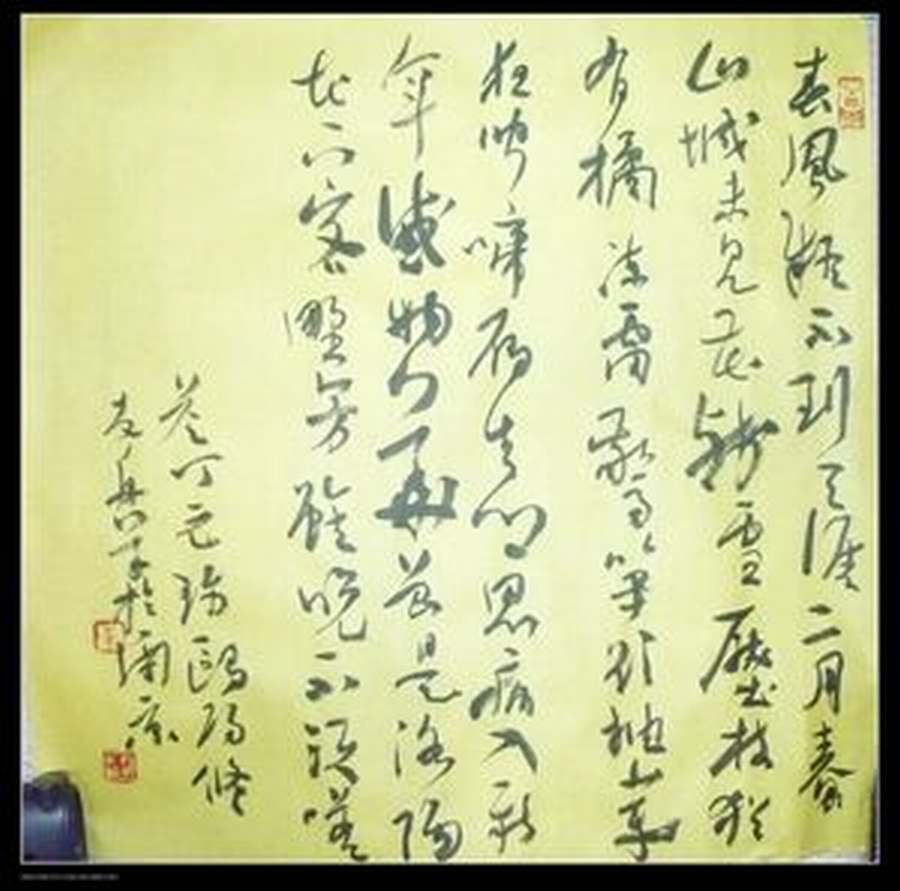 春風疑不到天涯二月春
山城未見花殘雪壓枝猶
有橘凍雷驚笋欲抽芽
聞啼雁生鄉思病入新
年感物華曾是洛陽
花下客野芳雖晚不須嗟
答丁元珍歐陽修
於南京